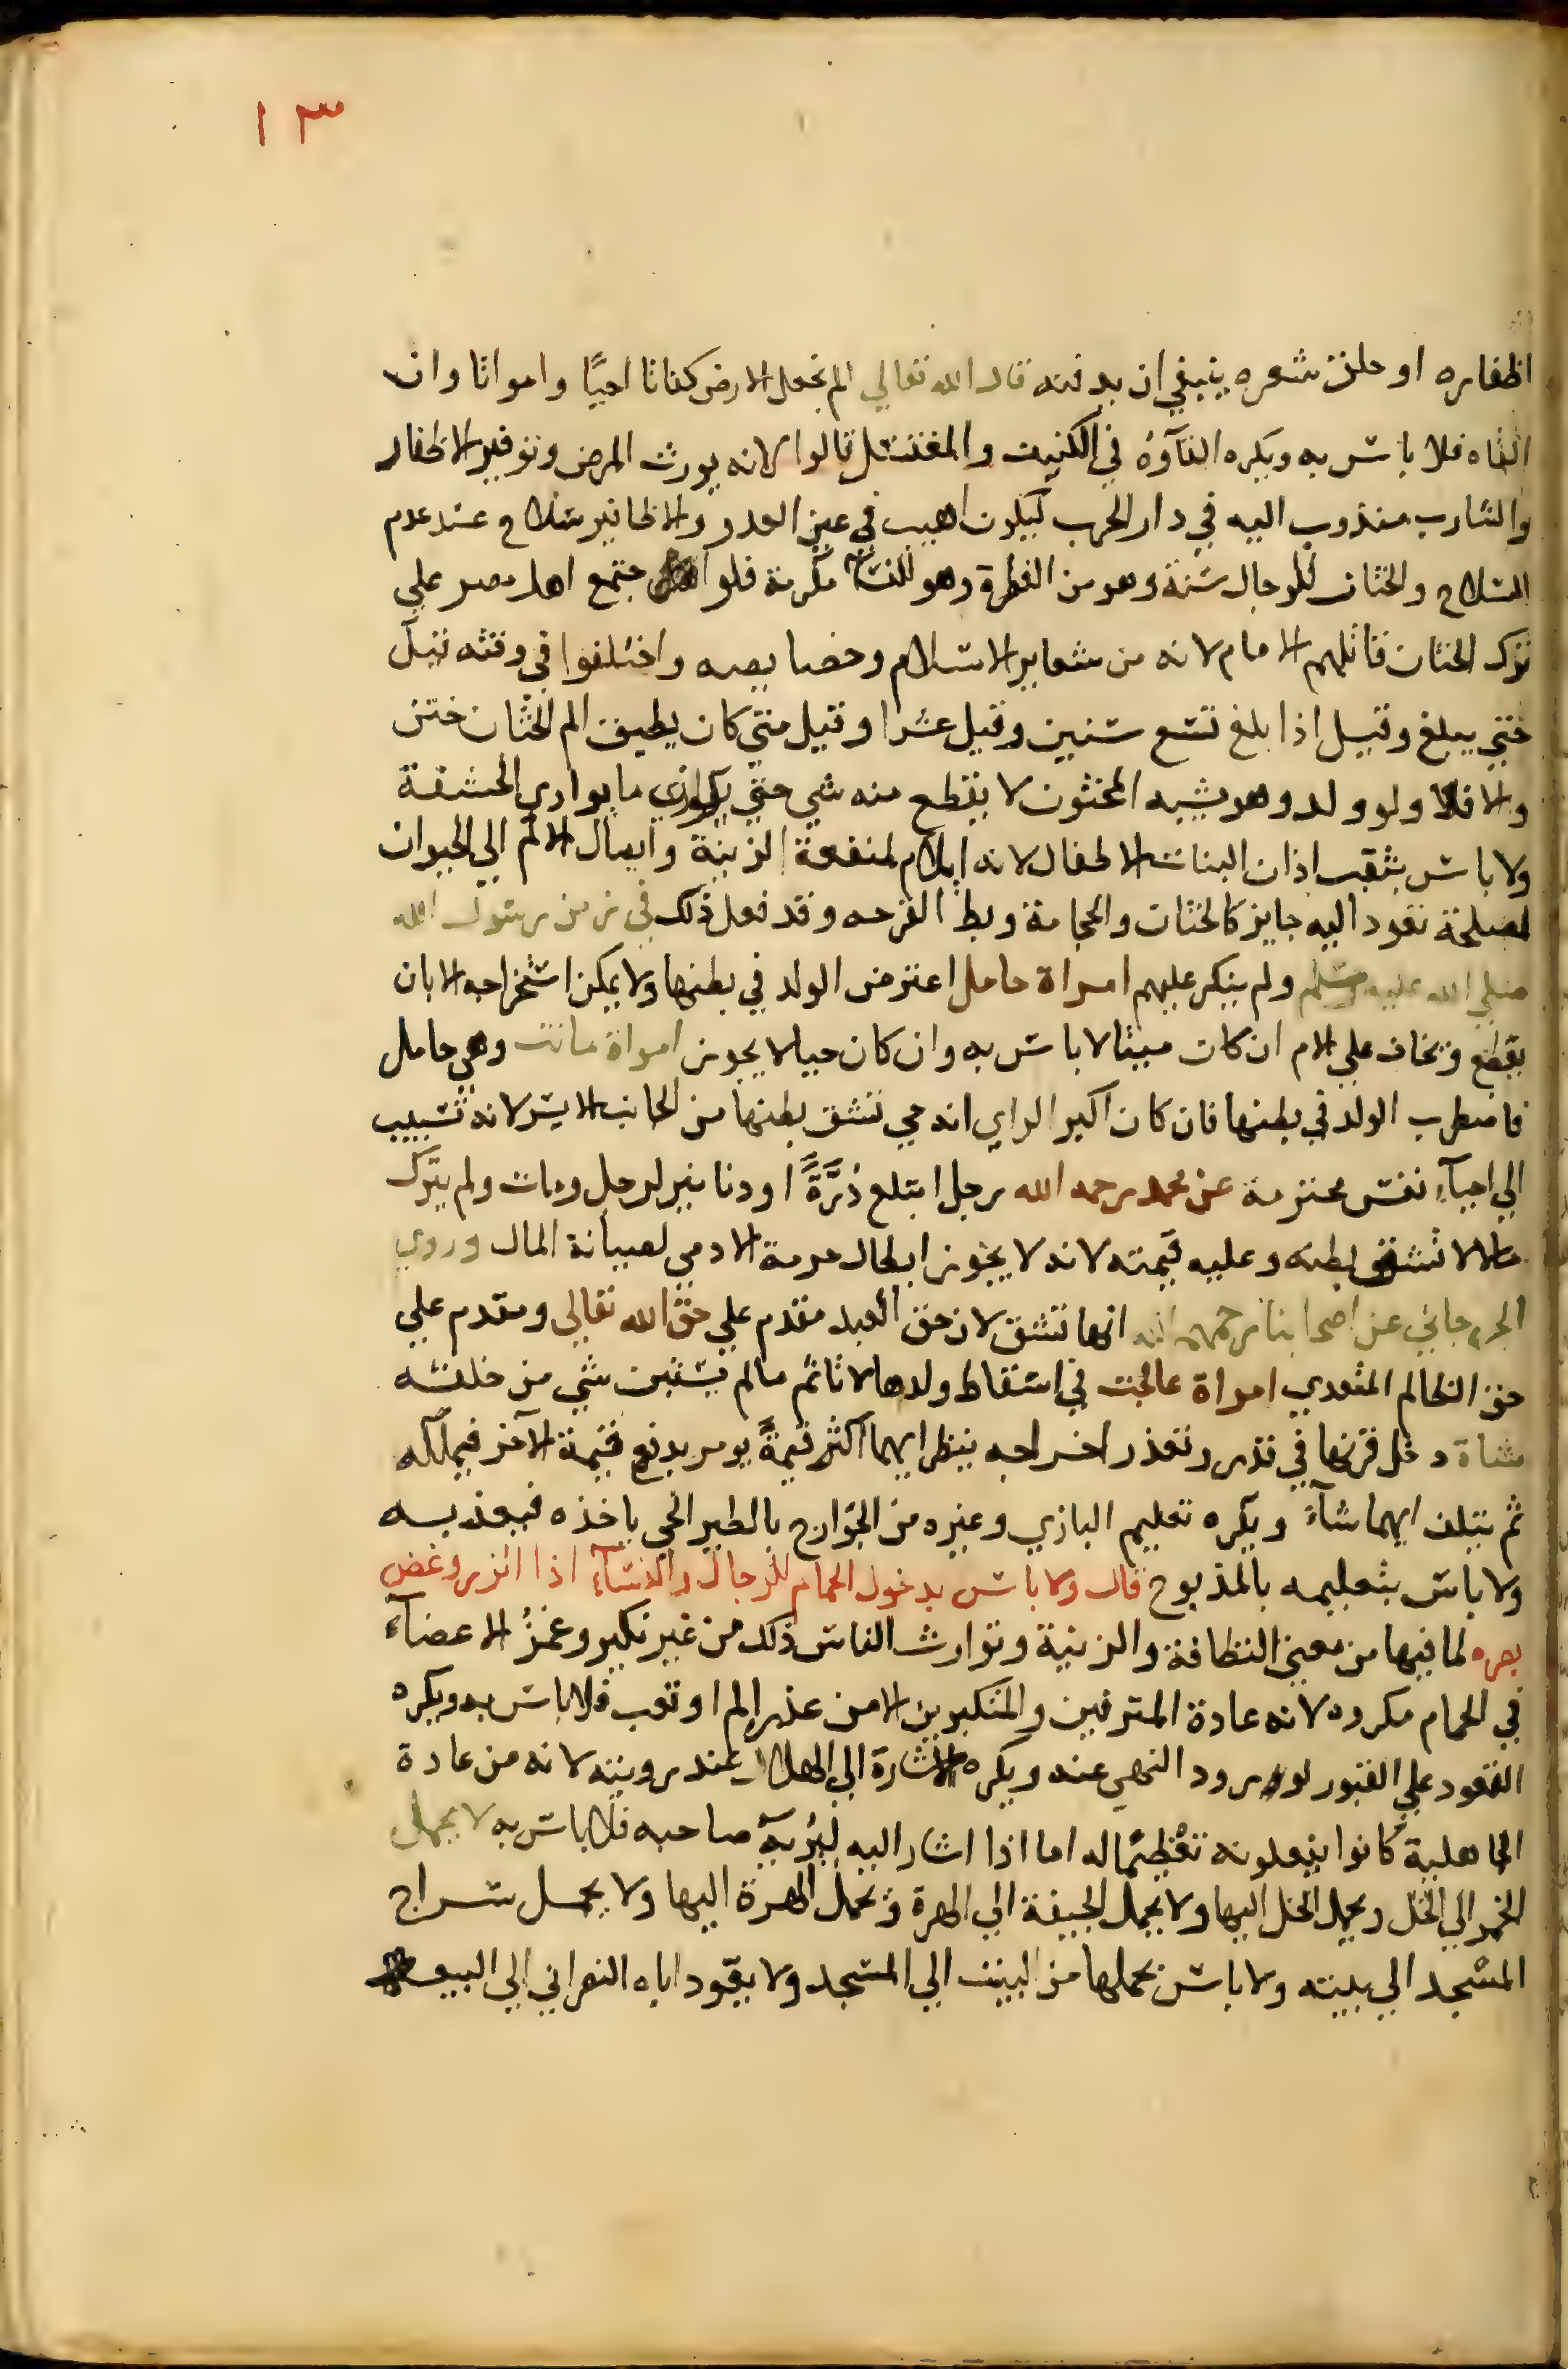 ١٣
اظفاره او حلق شعره ينبغي ان يدفنه قال الله تعالي الم نجعل الارض كفاتا احيًا وامواتا وان
القاه فلا باس به ويكره القآؤه في الكنيف والمغتسل قالوا لانه يورث المرض وتوفير الاظفار
والشارب مندوب اليه في دار الحرب ليكون اهيب في عين العدو والاظافير سلاح عند عدم
السلاح والختان للرجال سنة وهو من الفطرة وهو للنساء مكرمة فلو اجتمع اهل مصر علي
ترك الختان قاتلهم الامام لانه من شعاير الاسلام وخصايصه واختلفوا في وقته قيل
حتي يبلغ وقيل اذا بلغ تسع سنين وقيل عشرا وقيل متي كان يطيق الم الختان ختن
والا فلا ولو ولد وهو يشبه المختون لا يقطع منه شي حتي يكون ما يواري الحشفة
ولا باس بثقب اذان البنات الاطفال لانه ايلام لمنفعة الزينة وايصال الالم الي الحيوان
لمصلحة تعود اليه جايز كالختان والحجامة وبط القرحه وقد فعل ذلك في زمن رسول الله
صلي الله عليه وسلم ولم ينكر عليهم امراة حامل اعترض الولد في بطنها ولا يمكن استخراجه الا بان
يقطع ويخاف علي الام ان كان ميتا لا باس به وان كان حيا لا يجوز امراة ماتت وهي حامل
فاضطرب الولد في بطنها فان كان اكبر الراي انه حي تشق بطنها من الجانب الايسر لانه تسبب
الي احيآء نفس محترمة عن محمد رحمه الله رجل ابتلع دُرَّةً او دنانير لرجل ومات ولم يترك
مالا لا تشق بطنه وعليه قيمته لانه لا يجوز ابطال حرمة الادمي لصيانة المال وروي
الجرجاني عن اصحابنا رحمهم الله انها تشق لان حق العبد مقدم علي حق الله تعالي ومقدم علي
حق الظالم المتعدي امراة عالجت في اسقاط ولدها لا تاثم مالم يستبن شي من خلقه
شاة دخل قرنها في قدر وتعذر اخراجه ينظر ايهما اكثر قيمةً يومر بدفع قيمة الآخر فيملكه
ثم يتلف ايهما شآء ويكره تعليم البازي وغيره من الجوارح بالطير الحي ياخذه فيعذبه
ولا باس بتعليمه بالمذبوح قال ولا باس بدخول الحمام للرجال والنسآء اذا اتزر وغض
بصره لما فيها من معني النظافة والزينة وتوارث الناس ذلك من غير نكير وغمزُ الاعضآء
في الحمام مكروه لانه عادة المترفين والمتكبرين الا من عذر الم او تعب فلا باس به ويكره
القعود علي القبور لورود النهي عنه ويكره الاشارة الي الهلال عند رويته لانه من عادة
الجاهلية كانوا يفعلونه تعظيمًا له اما اذا اشار اليه ليُريه صاحبه فلا باس به لا يحمل
الخمر الي الخل ويحمل الخل اليها ولا يحمل الجيفة الي الهرة ويحمل الهرة اليها ولا يحمل سراج
المسجد الي بيته ولا باس بحملها من البيت الي المسجد ولا يقود اباه النصراني الي البيعة